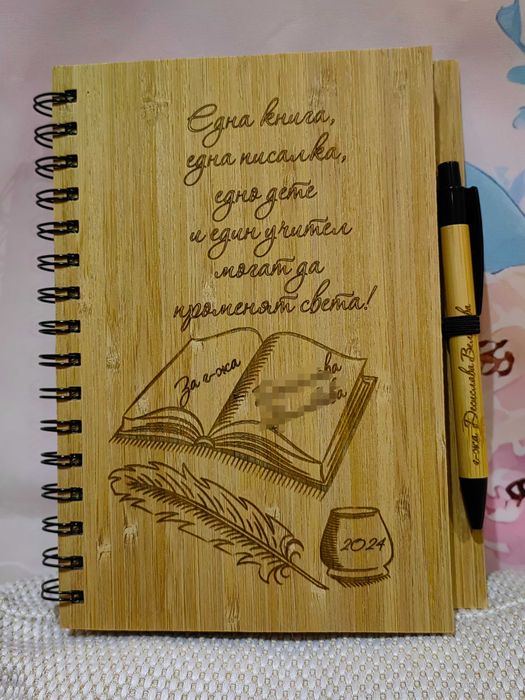 Една книга,
една писалка,
едно дете
и един учител
могат да
променят света!
За г-жа
ва
ва
2024
г-жа Десислава